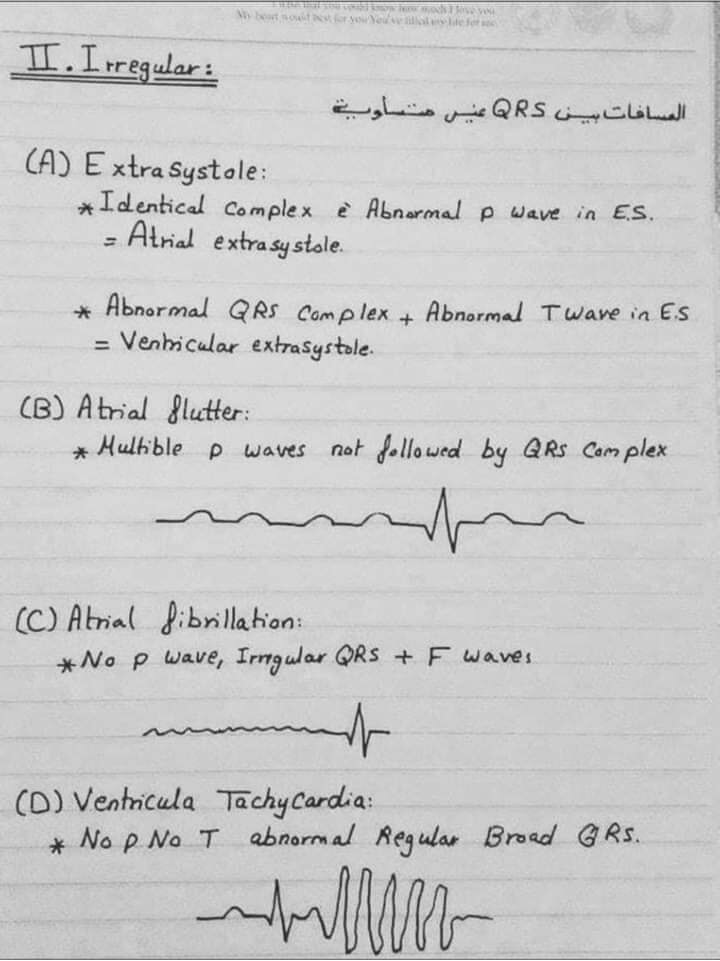 I wish that you could know how much I love you.
My heart would beat for you You've filled my life for me.
II. Irregular:
المسافات بين QRS غير متساوية
(A) Extrasystole:
* Identical Complex è Abnormal p wave in E.S.
= Atrial extrasystole.
* Abnormal QRS Complex + Abnormal T wave in E.S
= Ventricular extrasystole.
(B) Atrial flutter:
* Multible p waves not followed by QRS Complex
(C) Atrial fibrillation:
* No p wave, Irrrgular QRS + F waves
(D) Ventricula Tachycardia:
* No p No T abnormal Regular Broad QRS.